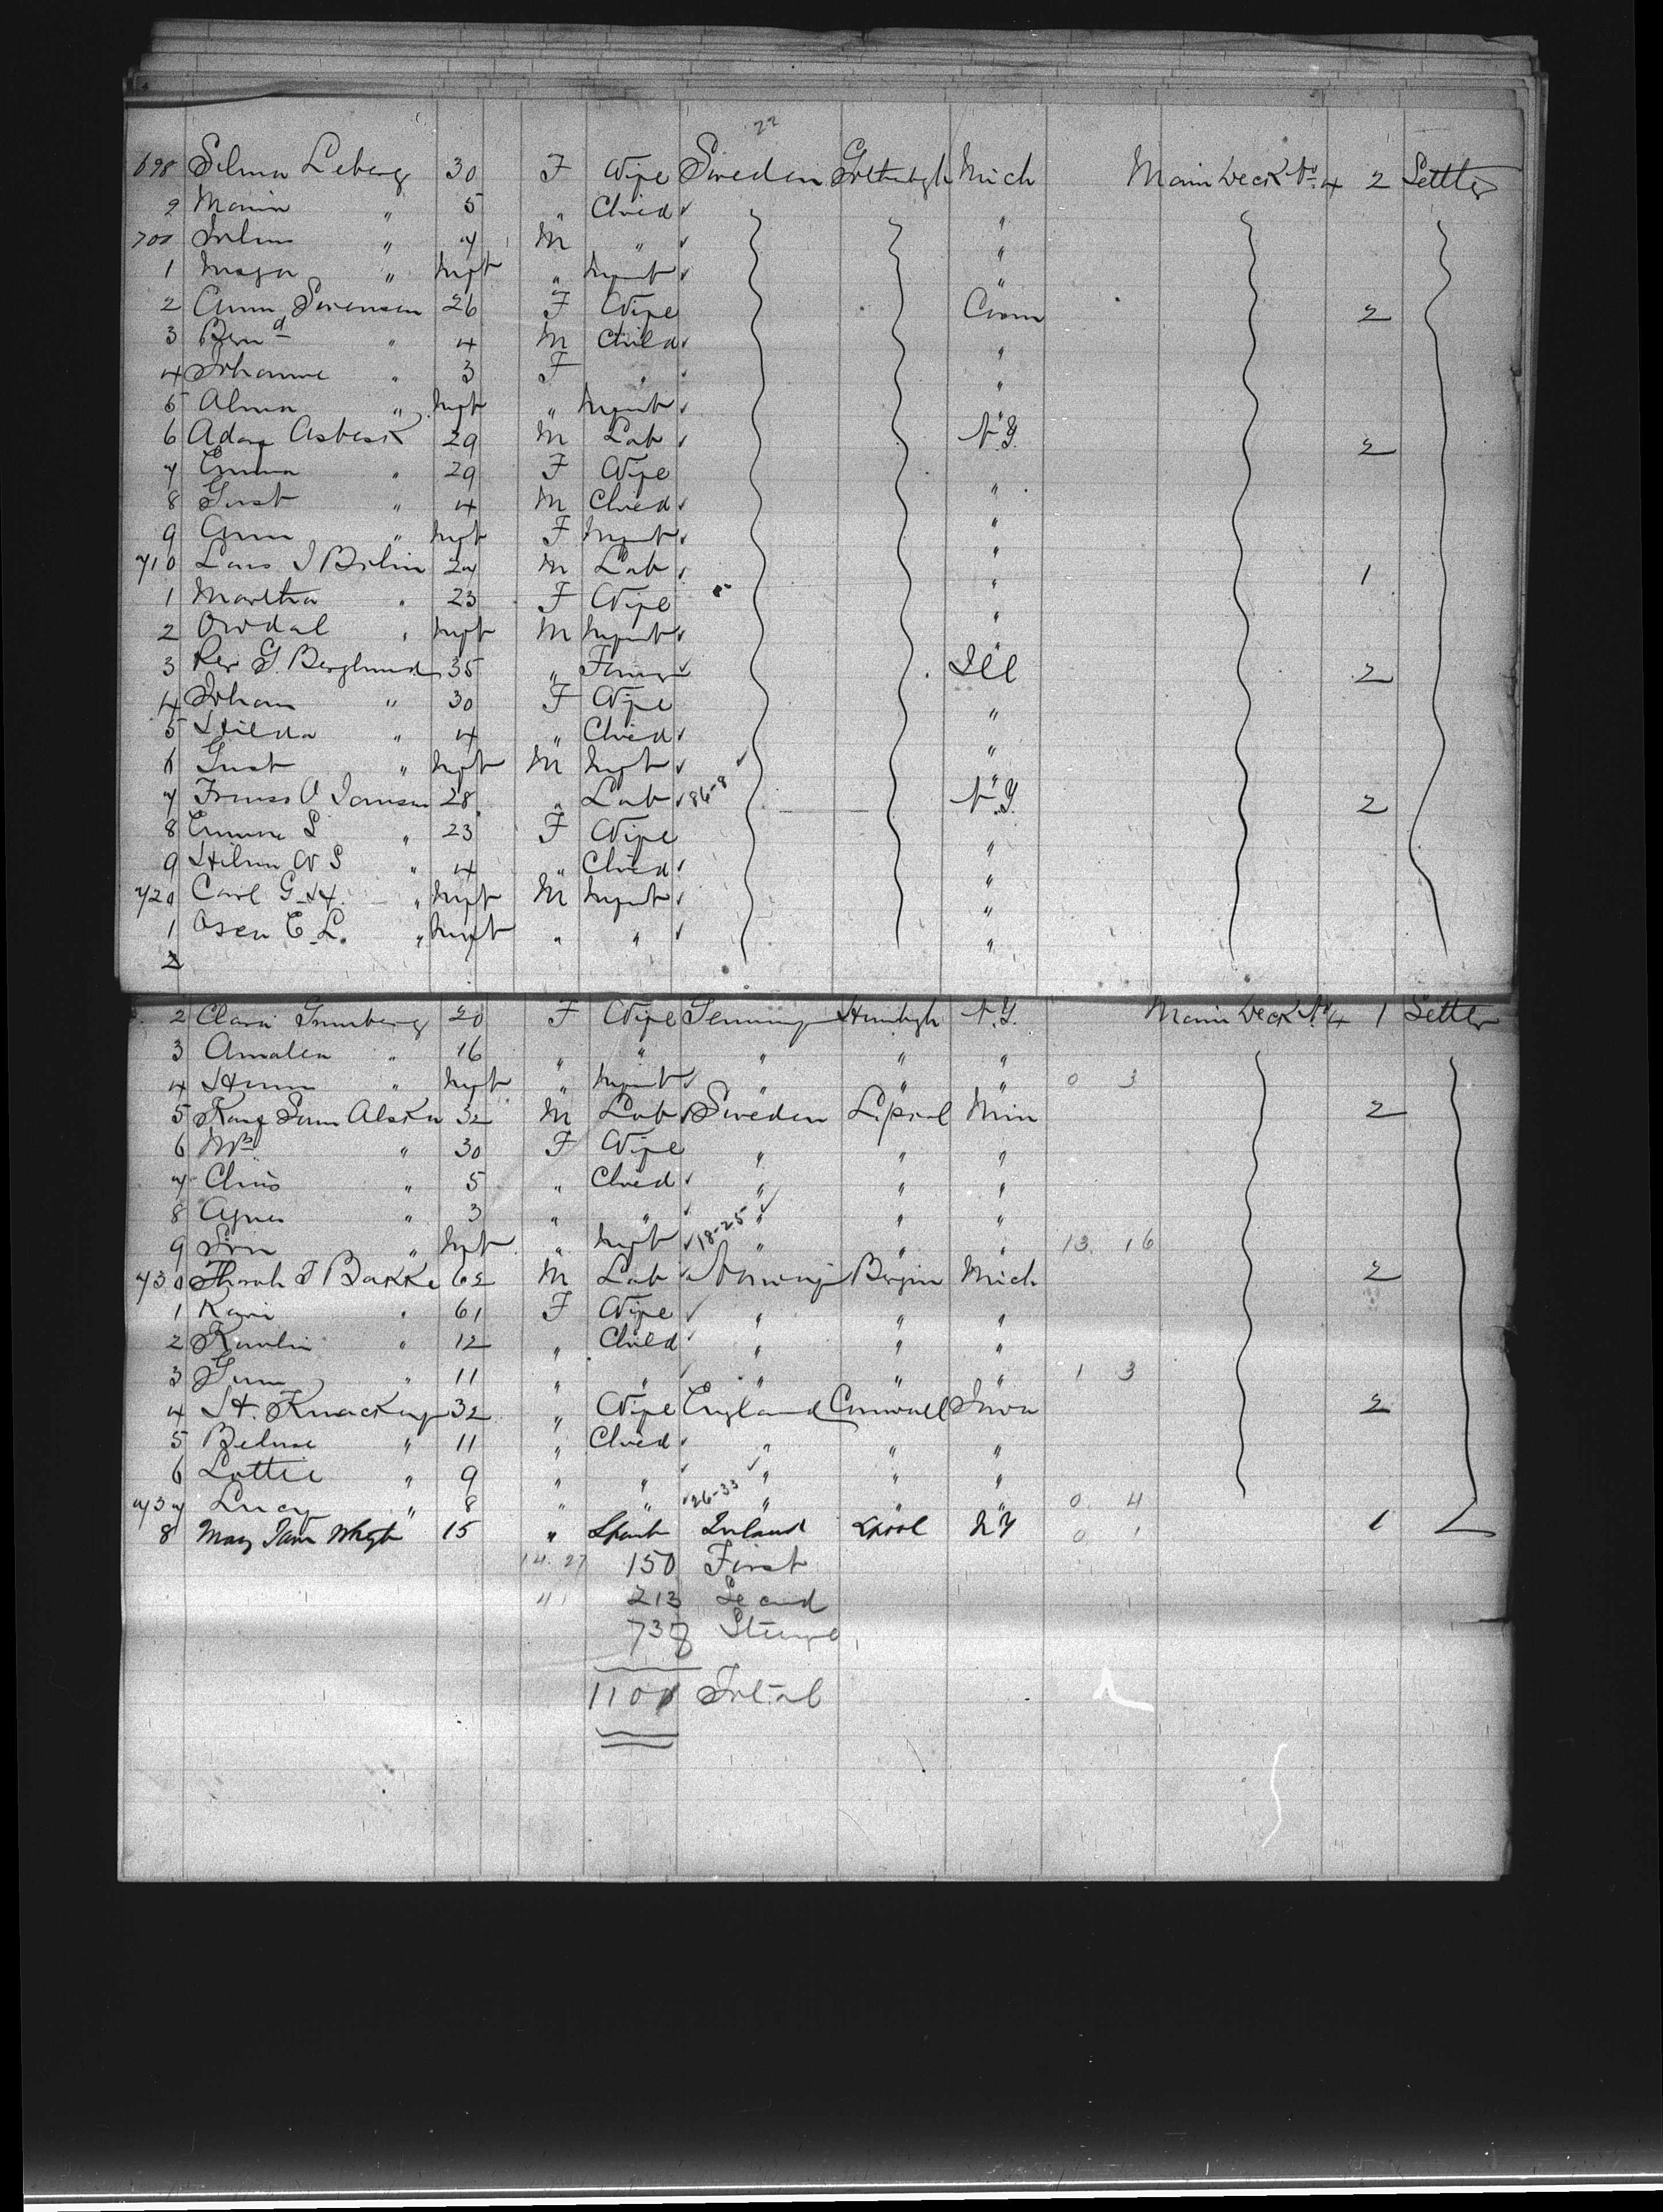 22
698 Selma Leberg 30 F Wife Sweden Gothebgh Mich Main Deck No 4 2 Settler
9 Maria " 5 " Child
700 Julius " 7 M "
1 Maja " Inft " Infant
2 Anna Sorensen 26 F Wife Conn 2
3 Bernd " 4 M Child "
4 Johanne " 3 F " "
5 Alma " Inft " Infant "
6 Adam Asbesk 29 M Lab N.Y. 2
7 Emma " 29 F Wife
8 Gust " 4 M Child "
9 Anna " Inft F Infant "
710 Lars J Bolin 24 M Lab " 1
1 Martha " 23 F Wife "
2 Orvdal " Inft M Infant "
3 Per G Berglund 35 " Farmer Ill 2
4 Johan " 30 F Wife
5 Hilda " 4 " Child "
6 Gust " Inft M Inft "
7 Frans O Jonsson 28 " Lab 86-8 N.Y. 2
8 Emma L " 23 F Wife
9 Hilma W S " 4 " Child "
720 Carl G. H. " Inft M Infant "
1 Oscar E. L. " Inft " " "
2
2 Clara Grunberg 20 F Wife Germany Hambgh N.Y. Main Deck No 4 1 Settler
3 Amalea " 16 " " " " "
4 " Inft " Infant " " " 0 3
5 Alska 32 M Lab Sweden Lipool Min 2
6 Mrs " 30 F Wife " " "
7 Chris " 5 " Child " " "
8 Agnes " 3 " " " " "
9 " Inft " Inft 18-25 " " " 13 16
730 J Bakke 62 M Lab Norway Bergin Mich 2
1 Kari " 61 F Wife " " "
2 " 12 " Child " " "
3 " 11 " " " " " 1 3
4 H. 32 " Wife England Cornwall Iowa 2
5 " 11 " Child " " "
6 Lottie " 9 " " " " "
737 Lucy " 8 " " 26-33 " " " 0 4
8 Mary Jane Whyte 15 " Spinst Ireland Lpool N Y 0 1 1
14 27 150 First
41 213 Second
738 Steerge
1101 Total